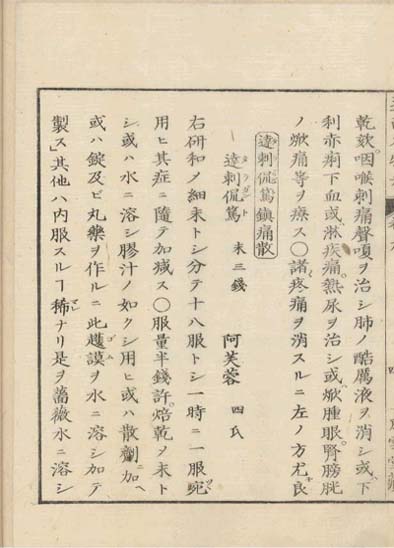 乾欬咽喉刺痛聲嗄ヲ治シ肺ノ酷厲液ヲ消シ或ハ下
利赤痢下血或ハ淋疾痛熱尿ヲ治シ或ハ焮腫眼腎膀胱
ノ焮痛等ヲ療ス〇諸疼痛ヲ消スルニ左ノ方尤良
達刺侃篤鎮痛散
達刺侃篤 末三錢 阿芙蓉 四氏
タラガント
右研和ノ細末トシ分テ十八服トシ一時ニ一服宛
用ヒ其症ニ隨テ加減ス〇服量半錢許焙乾ノ末ト
シ或ハ水ニ溶シ膠汁ノ如クシ用ヒ或ハ散劑ニ加ヘ
或ハ錠及ビ丸藥ヲ作ルニ此護謨ヲ水ニ溶シ加テ
製ス」其他ハ内服スルヿ稀ナリ是ヲ薔薇水ニ溶シ